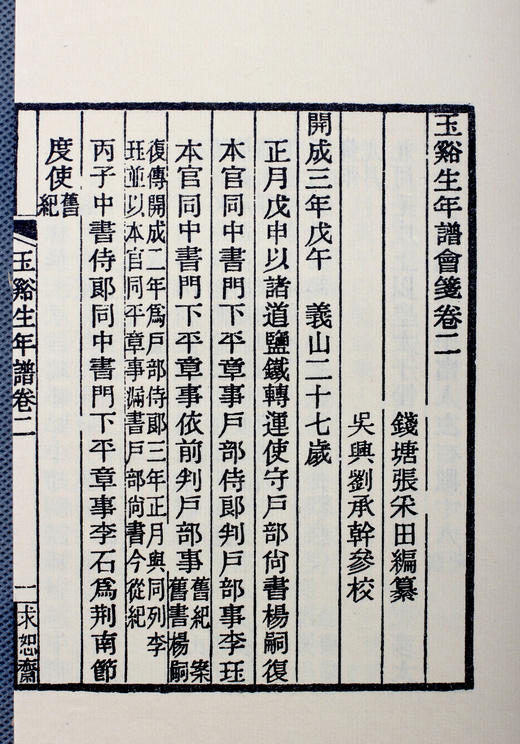 玉谿生年譜會箋卷二
錢塘張采田編纂
吳興劉承幹參校
開成三年戊午　義山二十七歲
正月戊申以諸道鹽鐵轉運使守戶部尙書楊嗣復
本官同中書門下平章事戶部侍郞判戶部事李珏
本官同中書門下平章事依前判戶部事舊紀案舊書楊嗣
復傳開成二年爲戶部侍郞三年正月與同列李
珏並以本官同平章事漏書戶部尙書今從紀
丙子中書侍郞同中書門下平章事李石爲荆南節
度使舊紀
玉谿生年譜卷二
一
求恕齋